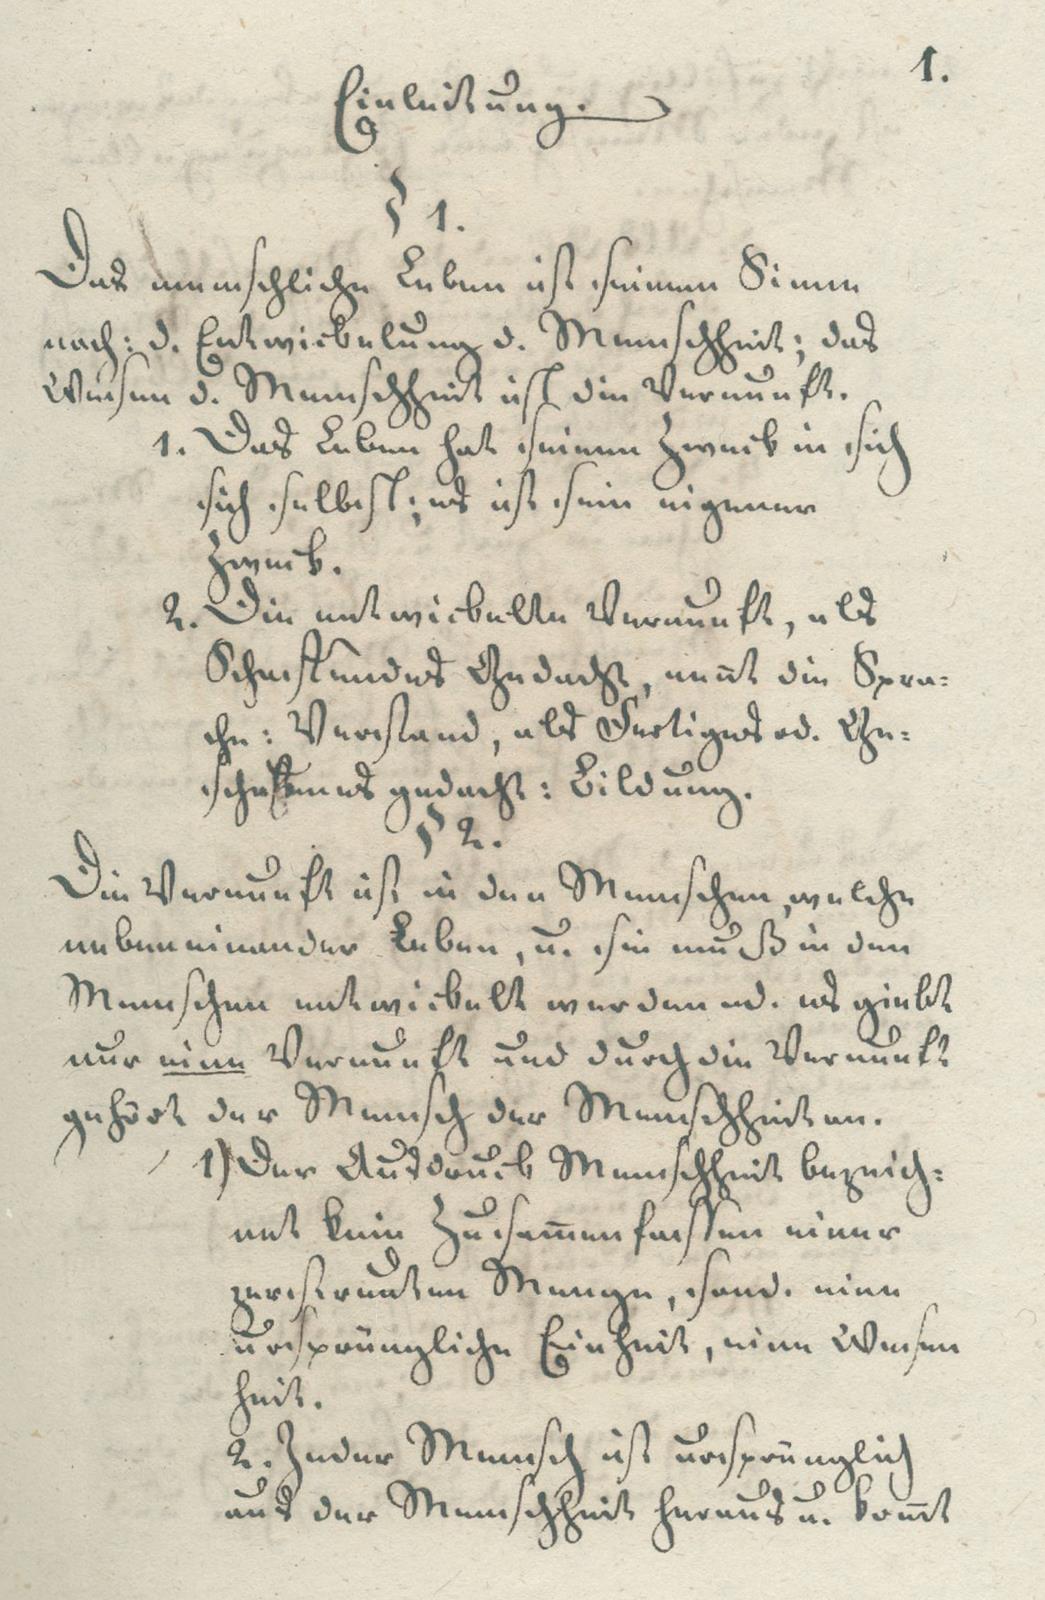 1.
Einleitung.
§ 1.
Das menschliche Leben ist seinem Sinne
nach: d. Entwickelung d. Menschheit; das
Wesen d. Menschheit ist die Vernunft.
1. Das Leben hat seinen Zweck in sich
sich selbst; es ist sein eigener
Zweck.
2. Die entwickelte Vernunft, als
Schaffendes Gedacht, nen̄t die Spra-
che: Verstand, als Fertiges od. Ge-
schaffenes gedacht: Bildung.
§ 2.
Die Vernunft ist in den Menschen, welche
nebeneinander Leben, u. sie muß in den
Menschen entwickelt werden od. es giebt
nur eine Vernunft und durch die Vernunft
gehört der Mensch der Menschheit an.
1) Der Ausdruck Menschheit bezeich-
net kein Zusam̄enfassen einer
zerstreuten Menge, sond. eine
ursprüngliche Einheit, eine Wesen
heit.
2. Jeder Mensch ist ursprünglich
aus der Menschheit heraus u. kom̄t